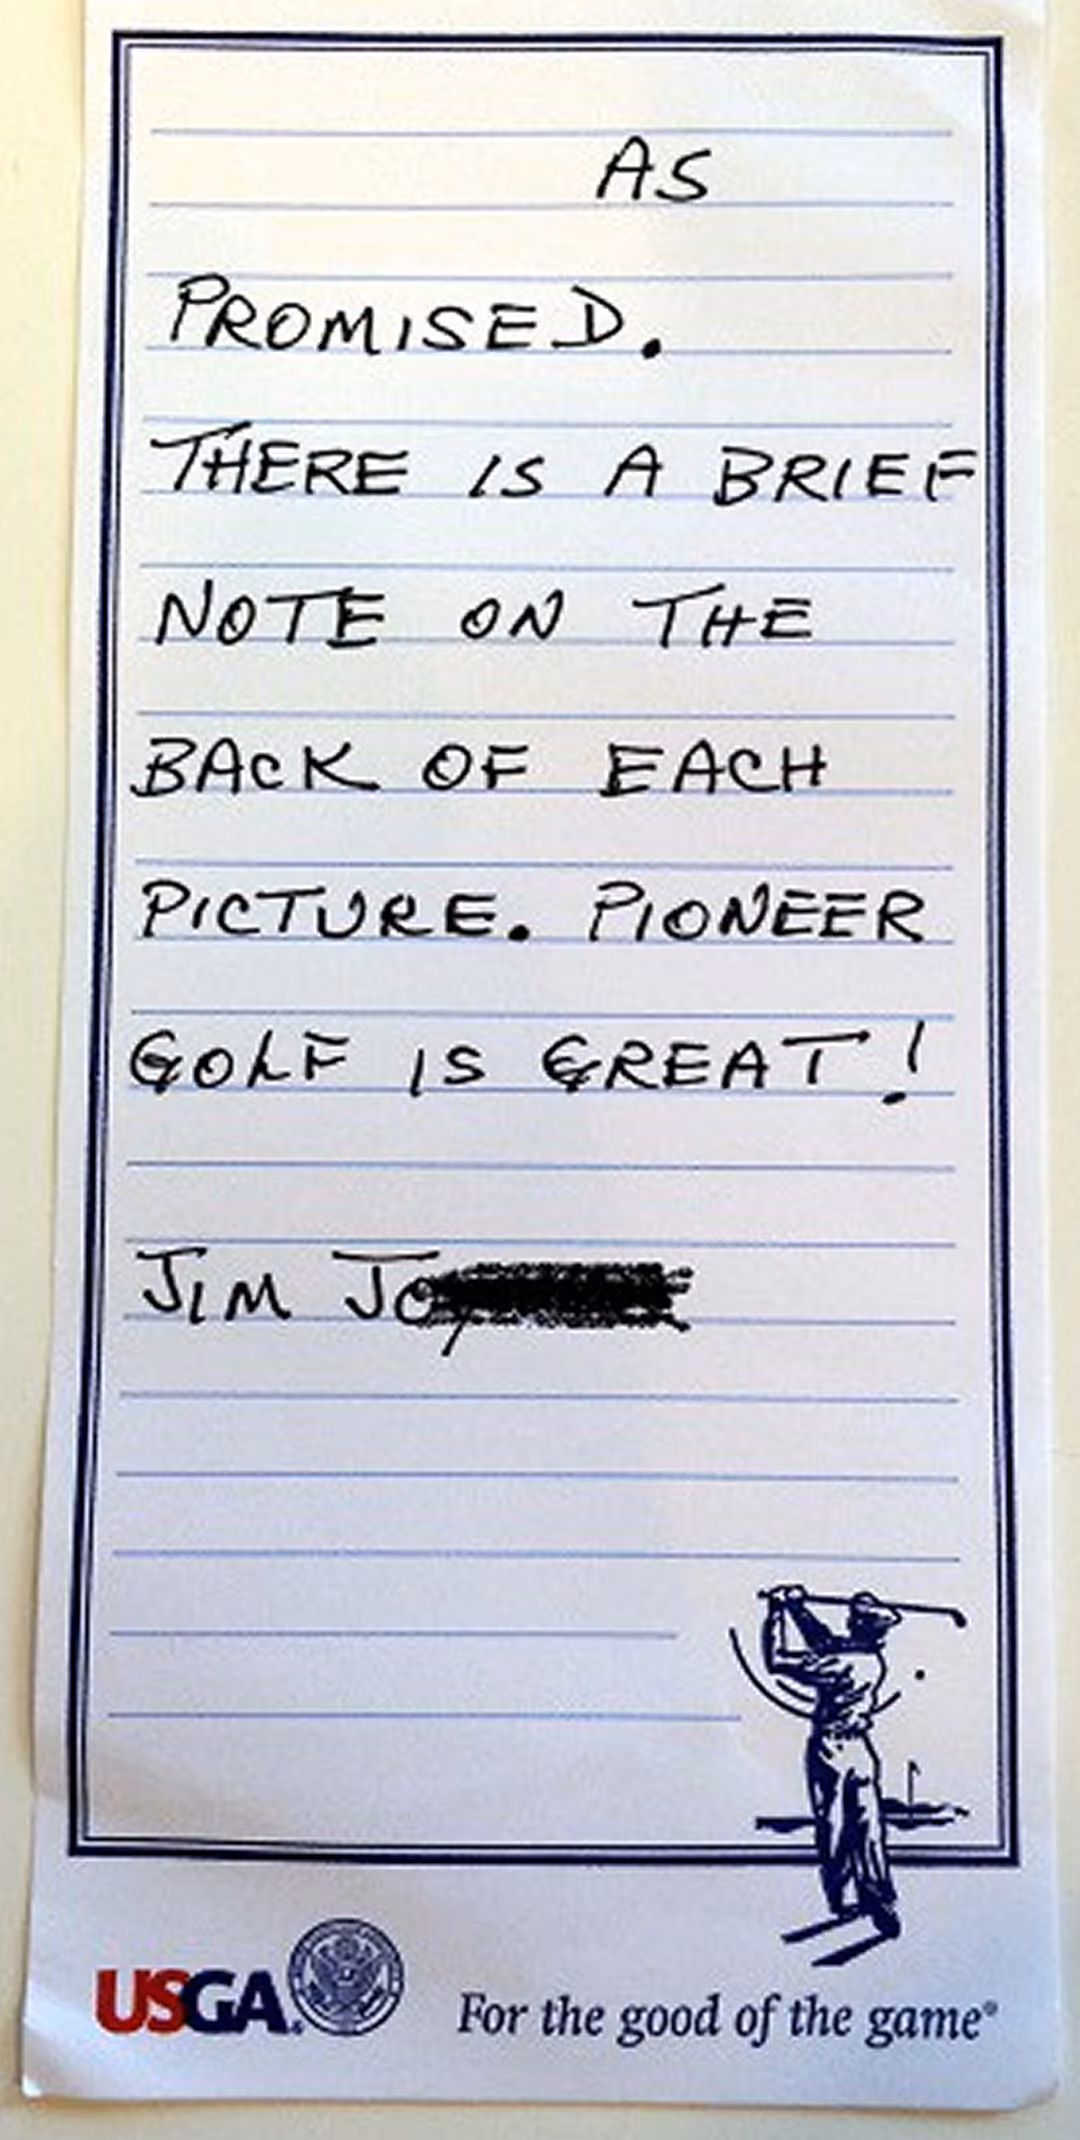 AS
PROMISED.
THERE IS A BRIEF
NOTE ON THE
BACK OF EACH
PICTURE. PIONEER
GOLF IS GREAT!
JIM
USGA
For the good of the game®